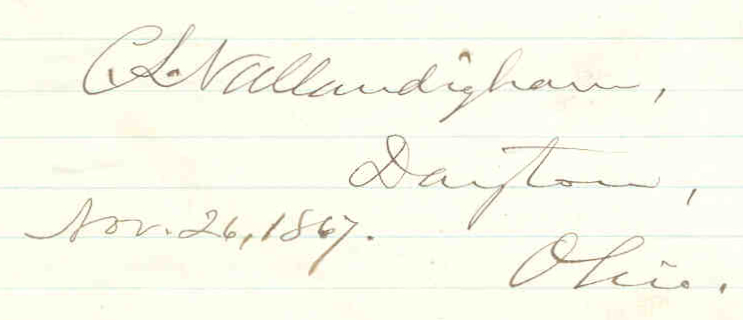 C. L. Vallandigham,
Dayton,
Nov. 26, 1867.
Ohio.